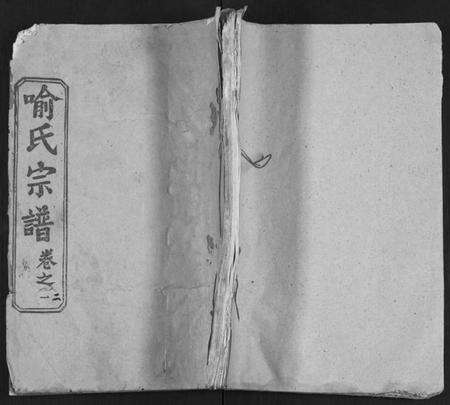 喻氏宗譜
卷之二